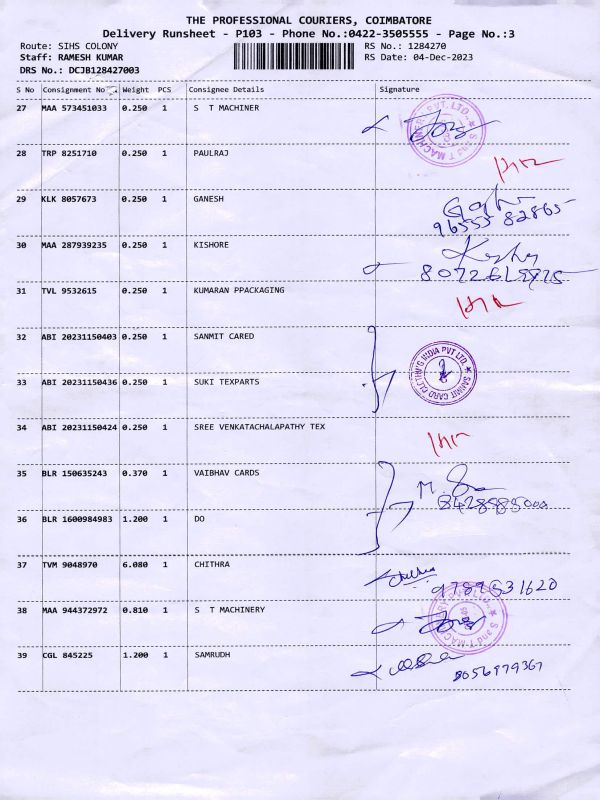 THE PROFESSIONAL COURIERS, COIMBATORE
Delivery Runsheet - P103 - Phone No.:0422-3505555 - Page No.:3
Route: SIHS COLONY
RS No.: 1284270
Staff: RAMESH KUMAR
RS Date: 04-Dec-2023
DRS No.: DCJB128427003
S No Consignment No Weight PCS Consignee Details Signature
27 MAA 573451033 0.250 1 S T MACHINER
28 TRP 8251710 0.250 1 PAULRAJ
29 KLK 8057673 0.250 1 GANESH
96555 82865
30 MAA 287939235 0.250 1 KISHORE
31 TVL 9532615 0.250 1 KUMARAN PPACKAGING
32 ABI 20231150403 0.250 1 SANMIT CARED
33 ABI 20231150436 0.250 1 SUKI TEXPARTS
34 ABI 20231150424 0.250 1 SREE VENKATACHALAPATHY TEX
35 BLR 150635243 0.370 1 VAIBHAV CARDS
36 BLR 1600984983 1.200 1 DO
37 TVM 9048970 6.080 1 CHITHRA
9789531620
38 MAA 944372972 0.810 1 S T MACHINERY
39 CGL 845225 1.200 1 SAMRUDH
8056979367